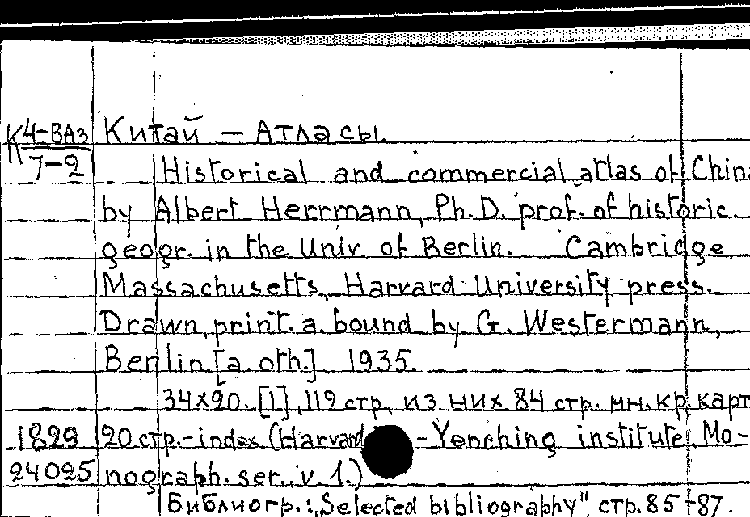 К4-ВАз Китай – Атласы.
7-2 Historical and commercial atlas of China
by Albert Herrmann, Ph. D. prof. of historic.
geogr. in the Univ. of Berlin. Cambridge
Massachusetts, Harvard University press.
Drawn, print. a. bound by G. Westermann,
Berlin [a. oth.] 1935.
34x20. [1], 119 стр., из них 84 стр. мн. кр. карт
1829 20 стр.-index (Harvard -Yenching institute Mo-
24095 nograph. ser., v. 1.)
Библиогр.: „Selected bibliography" стр. 85-87.